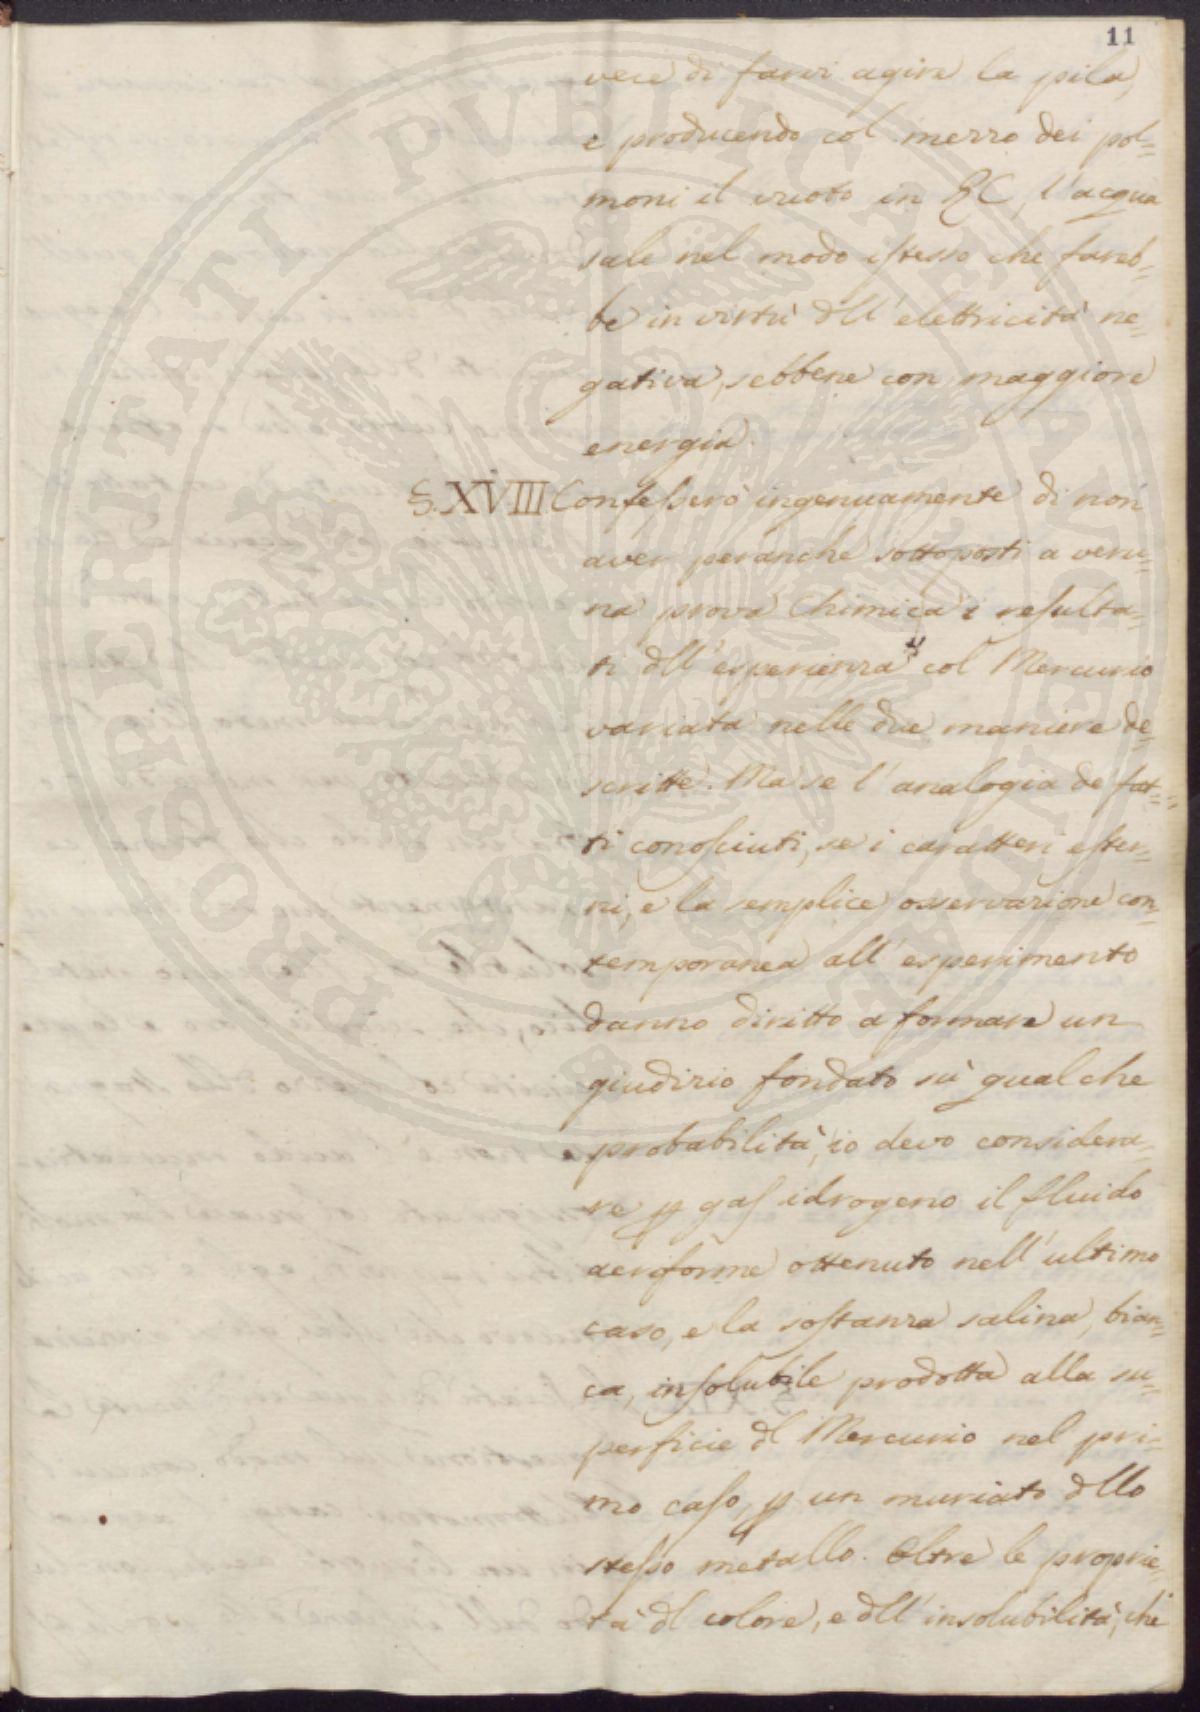 11
vece di farvi agire la pila,
e producendo col mezzo dei pol=
moni il vuoto in EC, l'acqua
sale nel modo istesso che fareb=
be in virtù dll' elettricità ne=
gativa, sebbene con maggiore
energia.
§.XVIII. Confesserò ingenuamente di non
aver peranche sottoposti a veru=
na prova Chimica i resulta=
ti dll' esperienza col Mercurio
variata nelle due maniere de=
scritte. Ma se l'analogia de fat=
ti conosciuti, se i caratteri ester=
ni, e la semplice osservazione con=
temporanea all' esperimento
danno diritto a formare un
giudizio fondato sù qualche
probabilità, io devo considera=
re p gas idrogeno il fluido
aeriforme ottenuto nell' ultimo
caso, e la sostanza salina, bian=
ca, insolubile prodotta alla su=
perficie dl Mercurio nel pri=
mo caso, p un muriato dllo
stesso metallo. Oltre le proprie=
tà dl colore, e dll' insolubilità, che
PROSPERITATI PUBLICAE AUGENDAE